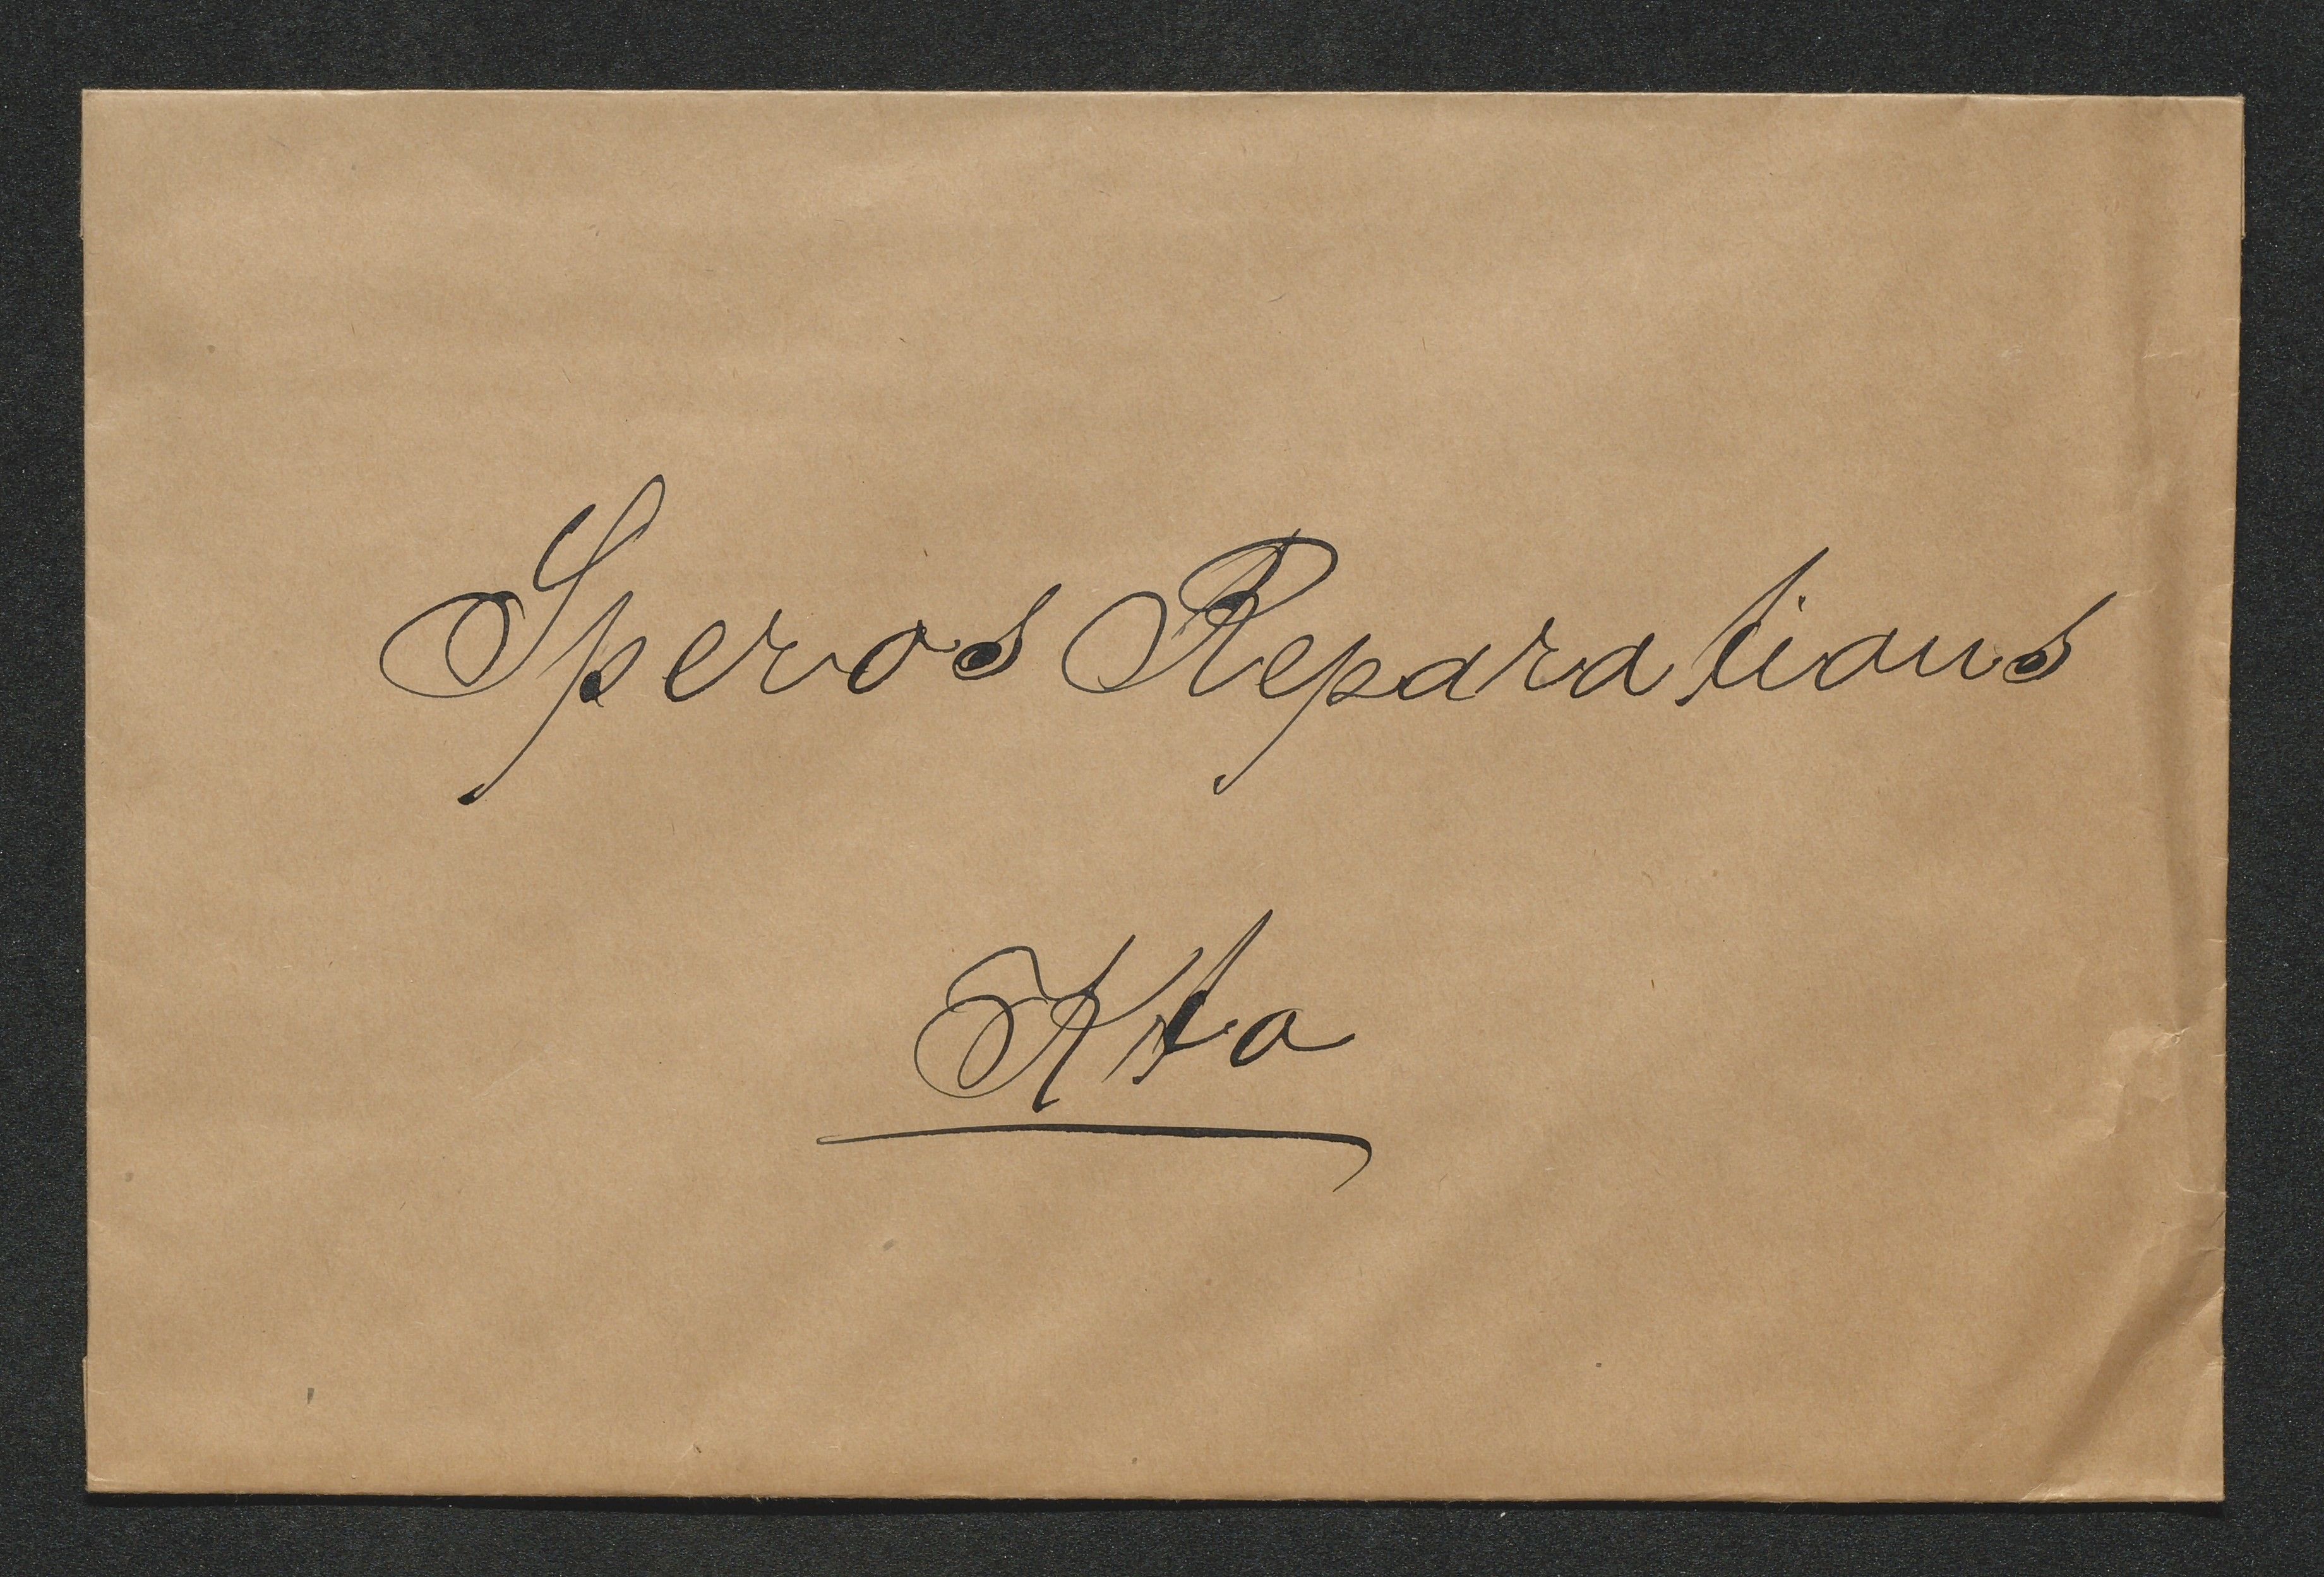 Speros Reparations
Kto